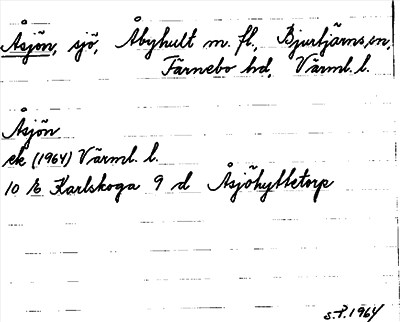 Åsjön, sjö, Åbyhult m. fl., Bjurtjärns sn,
Färnebo hd, Värml. l.
Åsjön
ek (1964) Värml. l.
10 b Karlskoga 9 d Åsjöhyttetorp
S.P. 1964